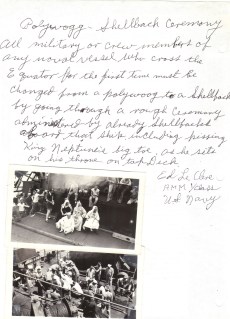 Polywogg - Shellback Ceremony
All military or crew members of
any naval vessel who cross the
Equator for the first time must be
changed from a polywog to a Shellback
by going through a rough Ceremony
administered by already Shellbacks
aboard that ship including kissing
King Neptune's big toe, as he sets
on his throne on top Deck
Ed Le
U.S. Navy